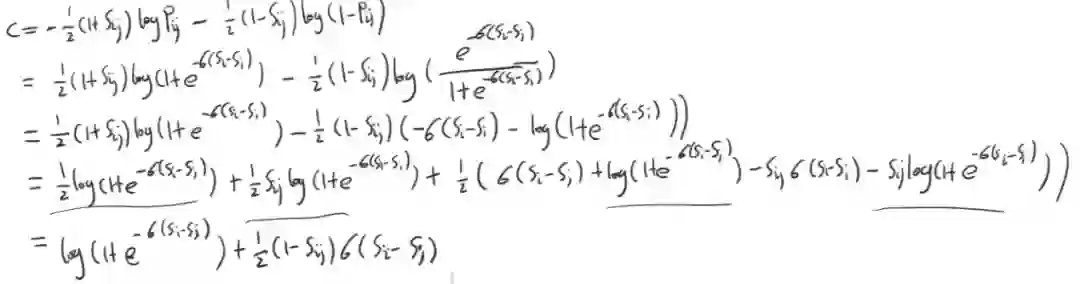 C = -½(1+Sij) log Pij - ½(1-Sij) log(1-Pij)
= ½(1+Sij) log(1+e^{-6(si-sj)}) - ½(1-Sij) log(e^{-6(si-sj)} / (1+e^{-6(si-sj)}))
= ½(1+Sij) log(1+e^{-6(si-sj)}) - ½(1-Sij)(-6(si-sj) - log(1+e^{-6(si-sj)}))
= ½log(1+e^{-6(si-sj)}) + ½Sij log(1+e^{-6(si-sj)}) + ½(6(si-sj) + log(1+e^{-6(si-sj)}) - Sij 6(si-sj) - Sij log(1+e^{-6(si-sj)}))
= log(1+e^{-6(si-sj)}) + ½(1-Sij)6(si-sj)